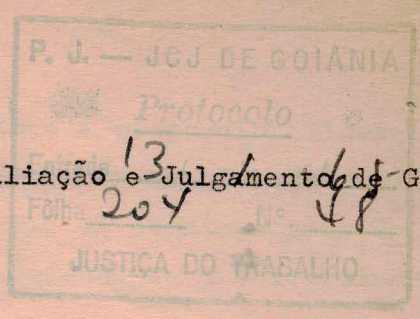 P. J. — JCJ DE GOIÂNIA
Protocolo
Entrada 13
liação e Julgamento de G
Fôlha 204 N.º 48
JUSTIÇA DO TRABALHO